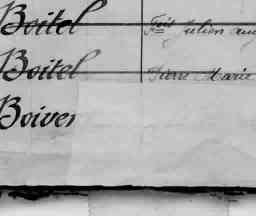 Boitel Fois Julien
Boitel Pierre Marie
Boiver